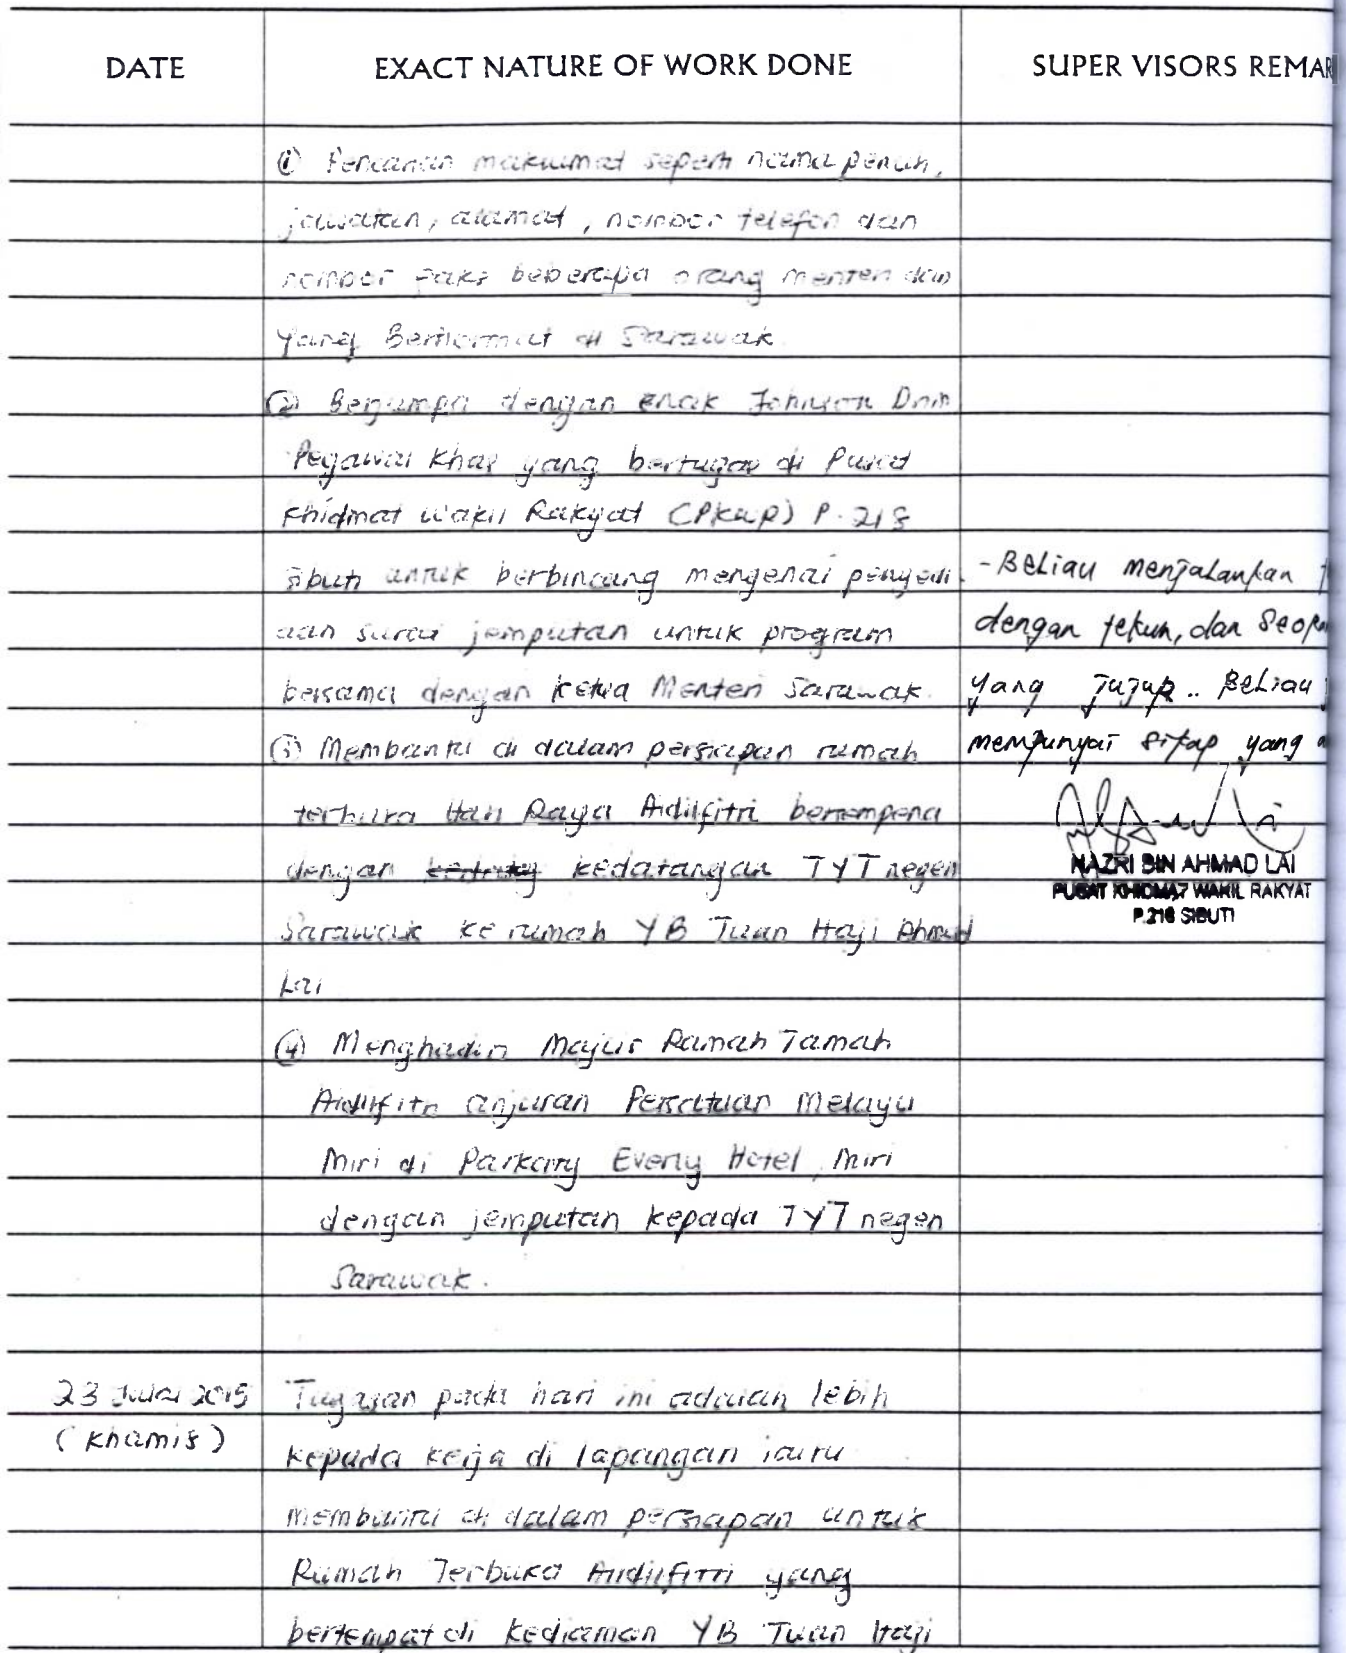 DATE
EXACT NATURE OF WORK DONE
SUPER VISORS REMAR
① Pencarian makuumat seperti nama penuh,
jawatan, alamat, nombor telefon dan
nombor faks beberapa orang menteri dan
Yang Berhormat di Sarawak.
② Berjumpa dengan encik Johnson
Pegawai Khas yang bertugas di Pusat
Khidmat Wakil Rakyat (PKWR) P.218
Sibuti untuk berbincang mengenai penyedi
aan surat jemputan untuk program
bersama dengan Ketua Menteri Sarawak.
③ Membantu di dalam persiapan rumah
terbuka Hari Raya Aidilfitri bersempena
dengan kedatangan TYT negeri
Sarawak ke rumah YB Tuan Haji Ahmad
Lai
④ Menghadiri Majlis Ramah Tamah
Aidilfitri anjuran Persatuan Melayu
Miri di Parkcity Everly Hotel, Miri
dengan jemputan kepada TYT negeri
Sarawak.
- Beliau menjalankan
dengan tekun, dan
yang .. Beliau
mempunyai sikap yang
NAZRI BIN AHMAD LAI
PUSAT KHIDMAT WAKIL RAKYAT
P.218 SIBUTI
23 Julai 2015
(Khamis)
Tugasan pada hari ini adalah lebih
kepada kerja di lapangan iaitu
membantu di dalam persiapan untuk
Rumah Terbuka Aidilfitri yang
bertempat di kediaman YB Tuan Haji